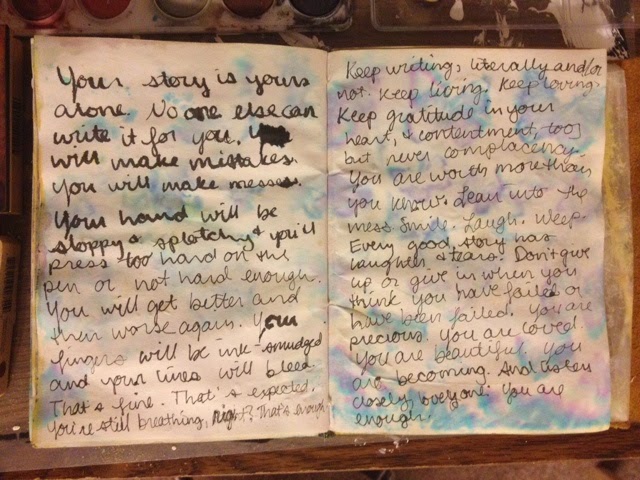 Your story is yours
alone. No one else can
write it for you. You
will make mistakes.
You will make messes.
Your hand will be
sloppy & splotchy & you'll
press too hard on the
pen or not hard enough.
You will get better and
then worse again. Your
fingers will be ink-smudged
and your lines will bleed.
That's fine. That's expected.
You're still breathing, right? That's enough.
Keep writing, literally and/or
not. Keep living. Keep loving.
Keep gratitude in your
heart, & contentment, too,
but never complacency.
You are worth more than
you know. Lean into the
mess. Smile. Laugh. Weep.
Every good story has
laughter & tears. Don't give
up or give in when you
think you have failed or
have been failed. You are
precious. You are loved.
You are beautiful. You
are becoming. And listen
closely, everyone: You are
enough.